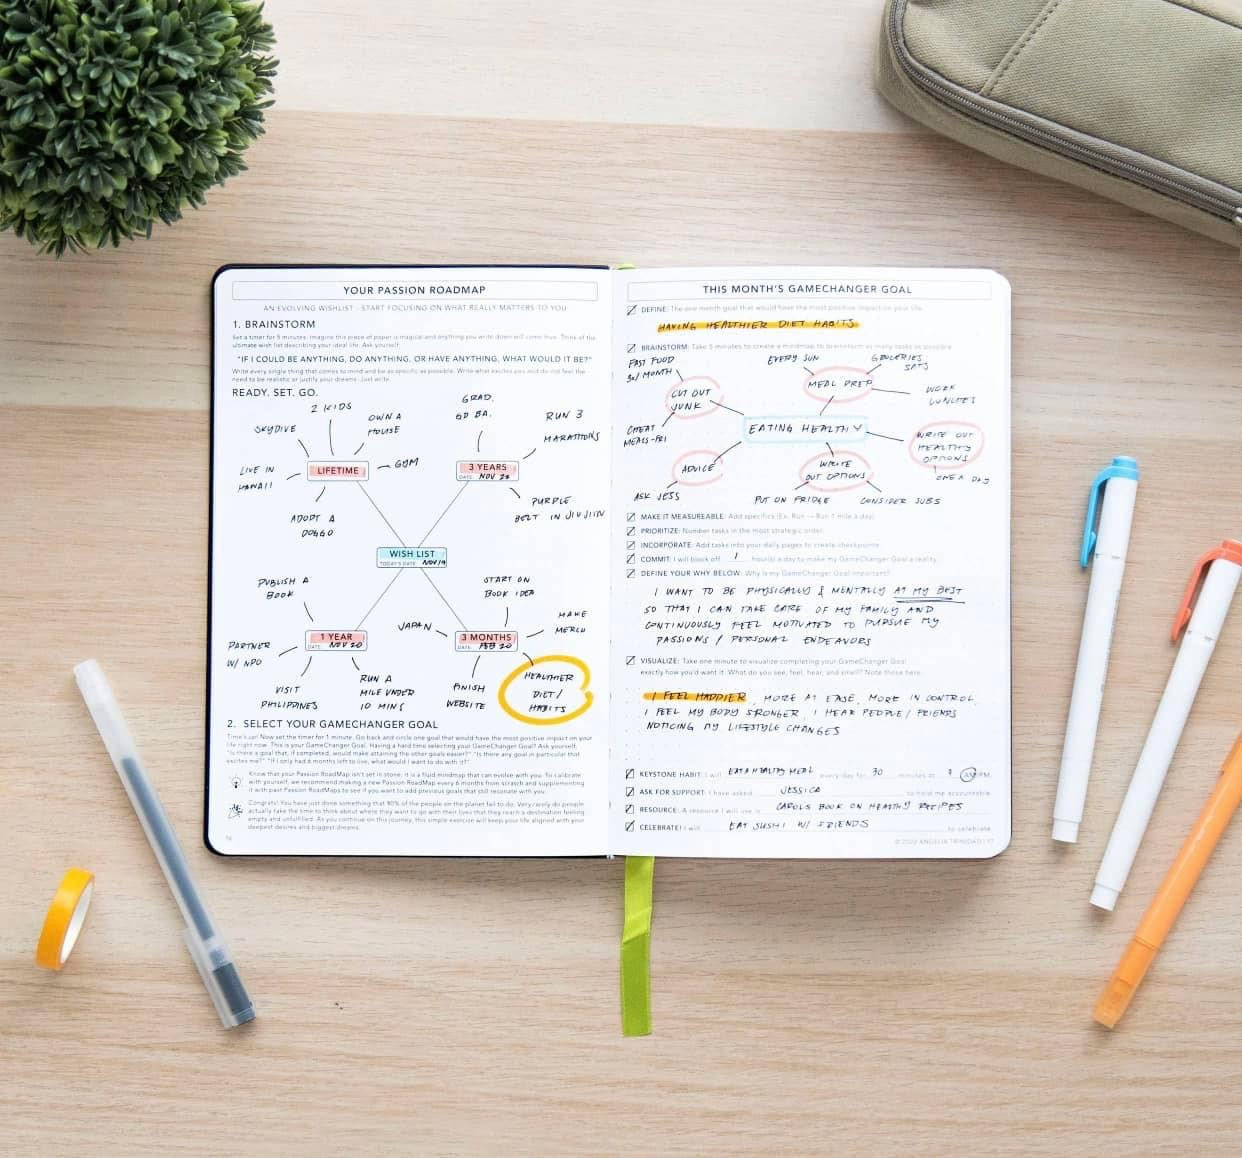 YOUR PASSION ROADMAP
AN EVOLVING WISHLIST - START FOCUSING ON WHAT REALLY MATTERS TO YOU
1. BRAINSTORM
Set a timer for 5 minutes. Imagine this piece of paper is magical and anything you write down will come true. Think of the
ultimate wish list describing your ideal life. Ask yourself:
"IF I COULD BE ANYTHING, DO ANYTHING, OR HAVE ANYTHING, WHAT WOULD IT BE?"
Write every single thing that comes to mind and be as specific as possible. Write what excites you and do not feel the
need to be realistic or justify your dreams. Just write.
READY. SET. GO.
2 KIDS
SKYDIVE
OWN A
HOUSE
LIVE IN
HAWAII
LIFETIME
GYM
ADOPT A
DOGGO
GRAD.
RUN 3
MARATHONS
3 YEARS
DATE:
PURPLE
BELT IN JIUJITSU
WISH LIST
TODAY'S DATE: NOV 19
PUBLISH A
BOOK
1 YEAR
DATE: NOV 20
PARTNER
W/ NPO
VISIT
PHILIPPINES
RUN A
MILE UNDER
10 MINS
START ON
BOOK IDEA
JAPAN
3 MONTHS
DATE: FEB 20
MAKE
MERCH
FINISH
WEBSITE
HEALTHIER
DIET/
HABITS
2. SELECT YOUR GAMECHANGER GOAL
Time's up! Now set the timer for 1 minute. Go back and circle one goal that would have the most positive impact on your
life right now. This is your GameChanger Goal. Having a hard time selecting your GameChanger Goal? Ask yourself,
"Is there a goal that, if completed, would make attaining the other goals easier?" "Is there any goal in particular that
excites me?" "If I only had 6 months left to live, what would I want to do with it?"
Know that your Passion RoadMap isn't set in stone; it is a fluid mindmap that can evolve with you. To calibrate
with yourself, we recommend making a new Passion RoadMap every 6 months from scratch and supplementing
it with past Passion RoadMaps to see if you want to add previous goals that still resonate with you.
Congrats! You have just done something that 90% of the people on the planet fail to do. Very rarely do people
actually take the time to think about where they want to go with their lives that they reach a destination feeling
empty and unfulfilled. As you continue on this journey, this simple exercise will keep your life aligned with your
deepest desires and biggest dreams.
THIS MONTH'S GAMECHANGER GOAL
DEFINE: The one month goal that would have the most positive impact on your life.
HAVING HEALTHIER DIET HABITS
BRAINSTORM: Take 5 minutes to create a mindmap to brainstorm as many tasks as possible.
FAST FOOD
3x/MONTH
CUT OUT
JUNK
CHEAT
MEALS-FRI
EVERY SUN
GROCERIES
SATS
MEAL PREP
WORK
LUNCHES
EATING HEALTHY
WRITE OUT
HEALTHY
OPTIONS
ONE A DAY
ADVICE
ASK JESS
WRITE
OUT OPTIONS
PUT ON FRIDGE
CONSIDER SUBS
MAKE IT MEASUREABLE: Add specifics (Ex. Run → Run 1 mile a day)
PRIORITIZE: Number tasks in the most strategic order.
INCORPORATE: Add tasks into your daily pages to create checkpoints.
COMMIT: I will block off 1 hour(s) a day to make my GameChanger Goal a reality.
DEFINE YOUR WHY BELOW: Why is my GameChanger Goal important?
I WANT TO BE PHYSICALLY & MENTALLY AT MY BEST
SO THAT I CAN TAKE CARE OF MY FAMILY AND
CONTINUOUSLY FEEL MOTIVATED TO PURSUE MY
PASSIONS / PERSONAL ENDEAVORS
VISUALIZE: Take one minute to visualize completing your GameChanger Goal
exactly how you'd want it. What do you see, feel, hear, and smell? Note those here:
I FEEL HAPPIER, MORE AT EASE, MORE IN CONTROL.
I FEEL MY BODY STRONGER. I HEAR PEOPLE / FRIENDS
NOTICING MY LIFESTYLE CHANGES
KEYSTONE HABIT: I will EAT A HEALTHY MEAL every day for 30 minutes at AM/PM.
ASK FOR SUPPORT: I have asked JESSICA to hold me accountable.
RESOURCE: A resource I will use is CAROLS BOOK ON HEALTHY RECIPES
CELEBRATE! I will EAT SUSHI W/ FRIENDS to celebrate